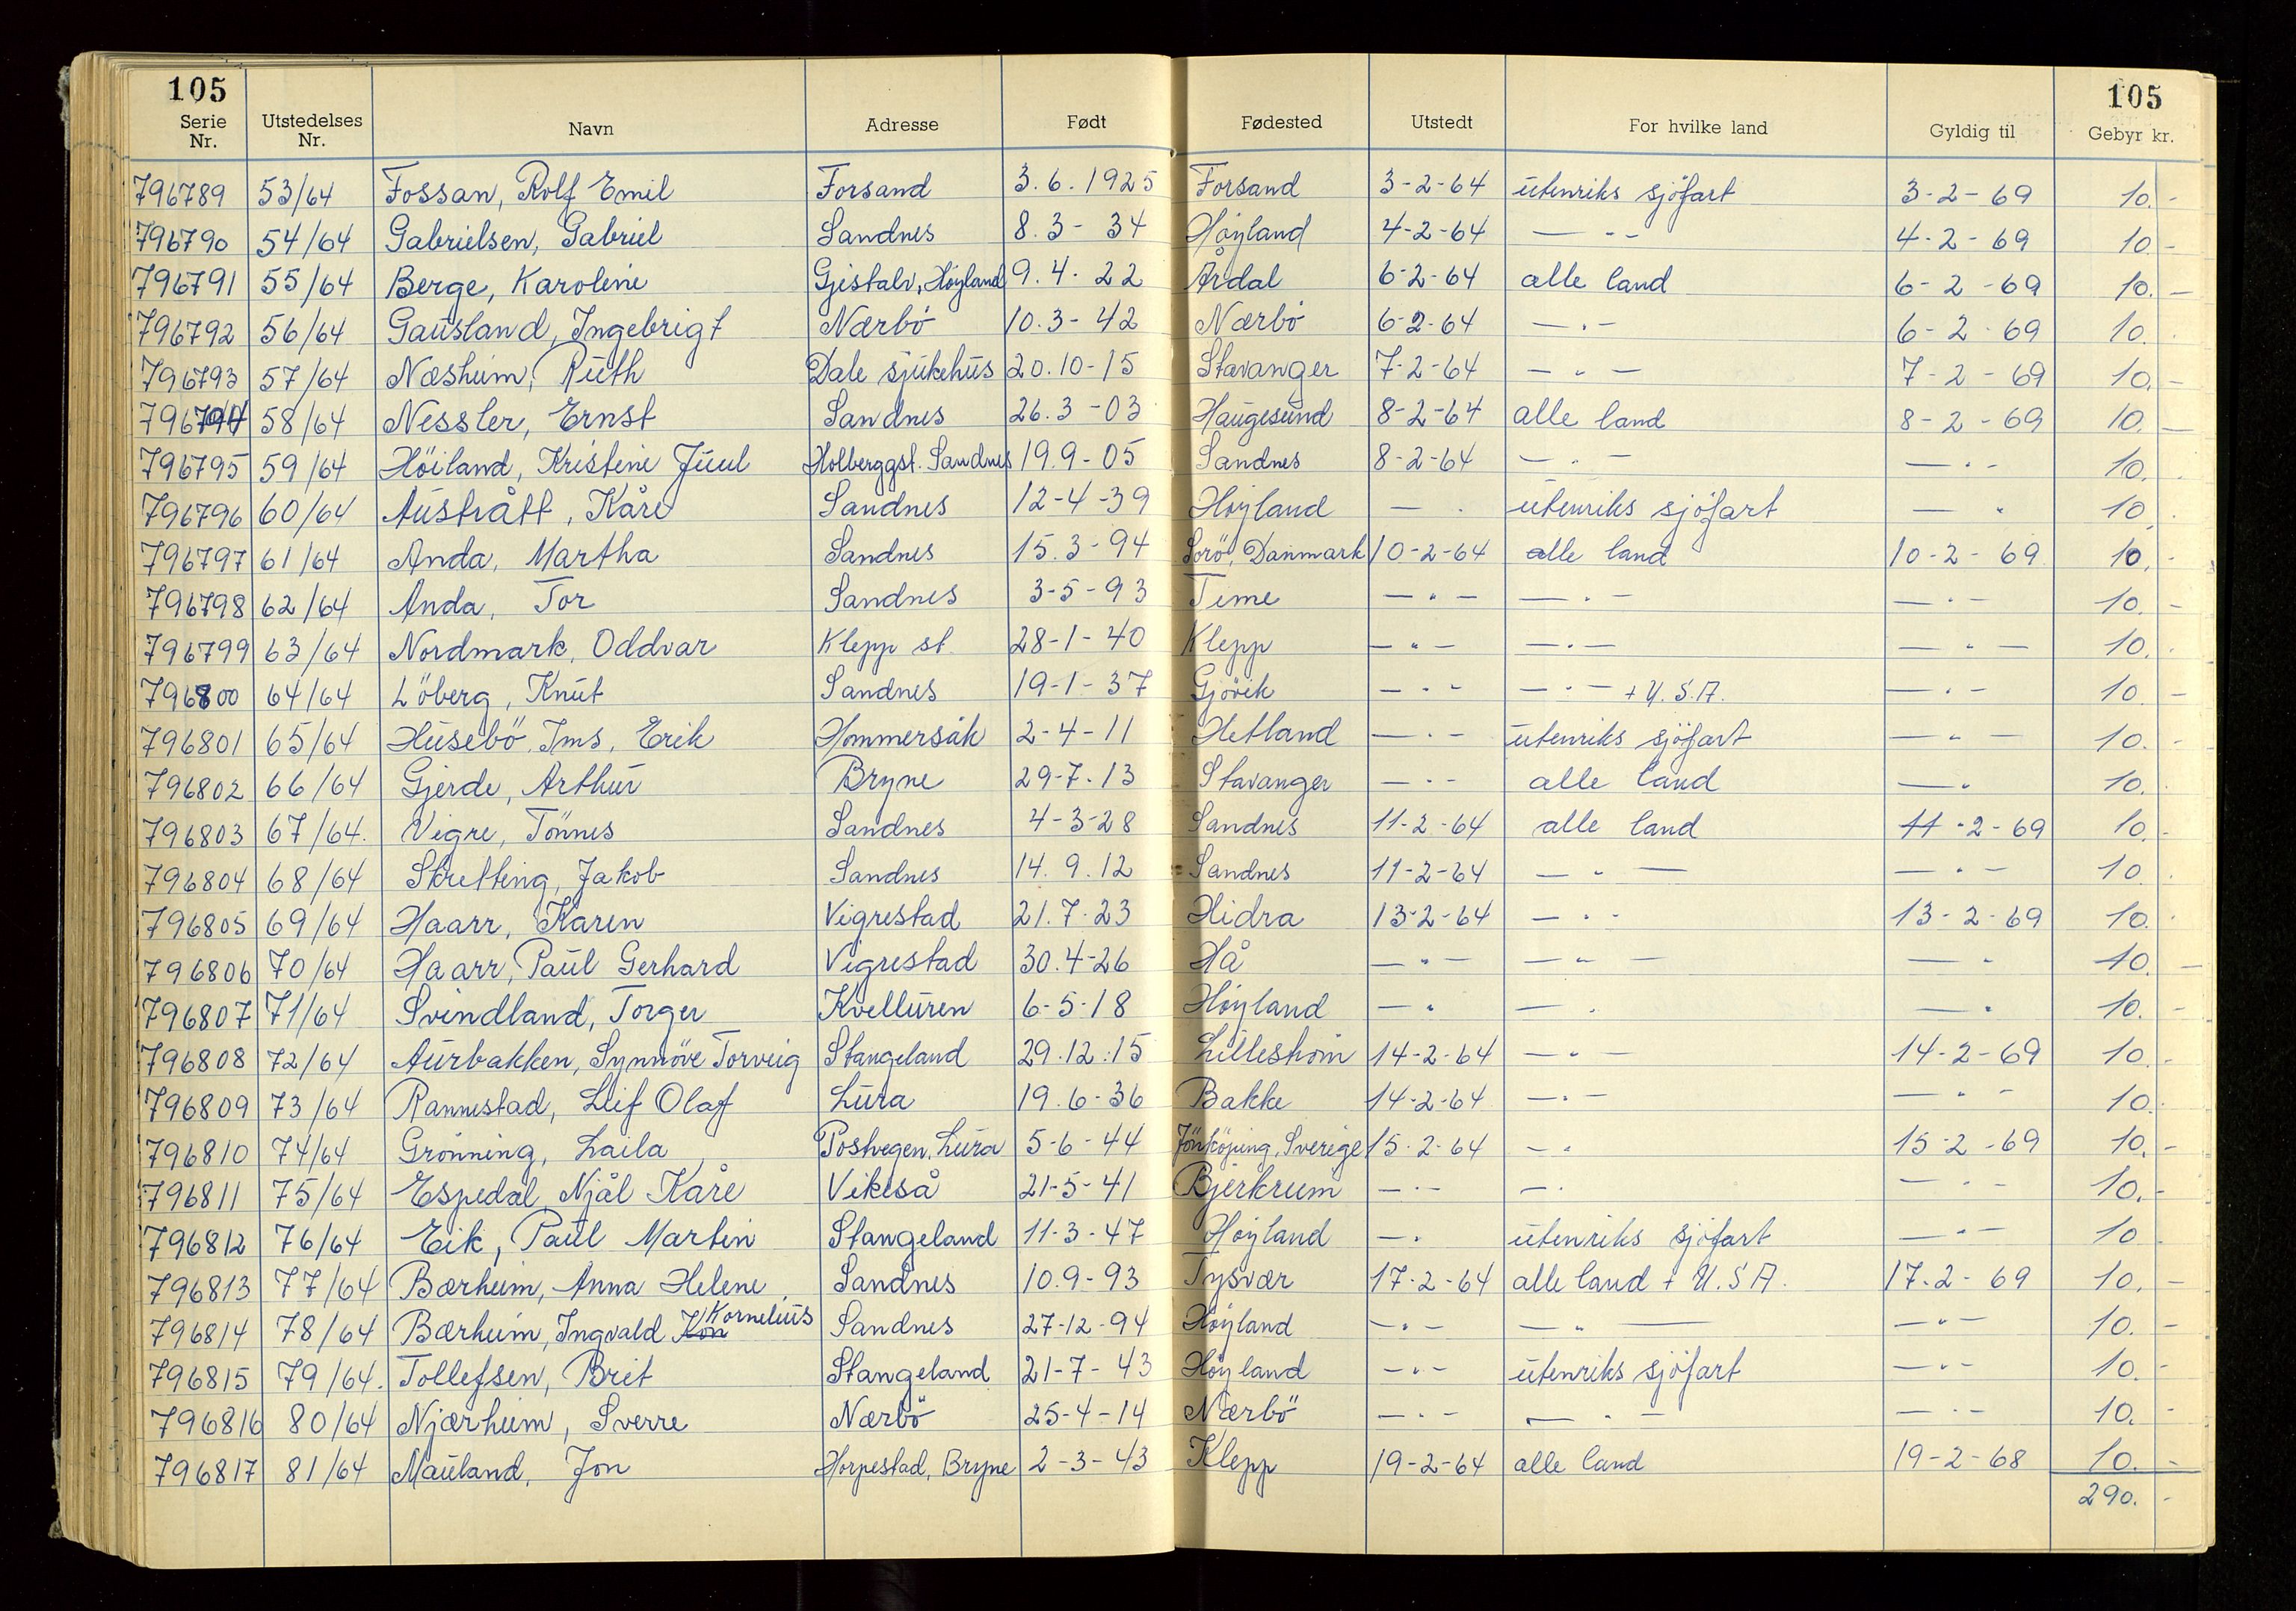 105 105
Serie Nr. Utstedelses Nr. Navn Adresse Født Fødested Utstedt For hvilke land Gyldig til Gebyr kr.
796789 53/64 Fossan, Rolf Emil Forsand 3.6.1925 Forsand 3-2-64 utenriks sjöfart 3-2-69 10.-
796790 54/64 Gabrielsen, Gabriel Sandnes 8.3-34 Høyland 4-2-64 — " - 4-2-69 10.-
796791 55/64 Berge, Karoline Gjistalv, Høyland 9.4.22 Årdal 6-2-64 alle land 6-2-69 10.-
796792 56/64 Gausland, Ingebrigt Nærbö 10.3-42 Nærbö 6-2-64 — " - 6-2-69 10.
796793 57/64 Næsheim, Ruth Dale sjukehus 20.10-15 Stavanger 7-2-64 — " — 7-2-69 10.-
796794 58/64 Nessler, Ernst Sandnes 26.3-03 Haugesund 8-2-64 alle land 8-2-69 10.-
796795 59/64 Höiland, Kristine Juul Holberggt. Sandnes 19.9-05 Sandnes 8-2-64 — " — — " - 10.
796796 60/64 Austrått, Kåre Sandnes 12-4-39 Høyland — " utenriks sjöfart — " 10.
796797 61/64 Anda, Martha Sandnes 15.3-94 Sorö, Danmark 10-2-64 alle land 10-2-69 10.-
796798 62/64 Anda, Tor Sandnes 3-5-93 Time — " — — " — — " — 10.-
796799 63/64 Nordmark, Oddvar Klepp st. 28-1-40 Klepp — " — — " — — " — 10.
796800 64/64 Löberg, Knut Sandnes 19-1-37 Gjövik — " - — " — + U.S.A. — " - 10.-
796801 65/64 Husebö Ims, Erik Hommersåk 2-4-11 Hetland — " - utenriks sjöfart — " — 10.-
796802 66/64 Gjerde, Arthur Bryne 29-7-13 Stavanger — " - alle land — " 10.
796803 67/64. Vigre, Tönnes Sandnes 4-3-28 Sandnes 11-2-64 alle land 11-2-69 10.-
796804 68/64 Skretting, Jakob Sandnes 14.9.12 Sandnes 11-2-64 — " — — " - 10.
796805 69/64 Haarr, Karen Vigrestad 21.7-23 Hidra 13-2-64 — " - 13-2-69 10.
796806 70/64 Haarr, Paul Gerhard Vigrestad 30.4-26 Hå — " — — " — — " 10.-
796807 71/64 Svindland, Torger Kvelluren 6-5-18 Høyland — " — " — " 10.-
796808 72/64 Aurbakken, Synnöve Torveig Stangeland 29.12.15 Lillestrøm 14-2-64 — " — 14-2-69 10.-
796809 73/64 Rannestad, Leif Olaf Lura 19.6-36 Bakke 14-2-64 — " — — " - 10.
796810 74/64 Grönning, Laila Postvegen, Lura 5-6-44 Jönköping, Sverige 15-2-64 - " 15-2-69 10.-
796811 75/64 Espedal, Njål Kåre Vikeså 21-5-41 Bjerkreim — " - — " — " - 10.-
796812 76/64 Eik, Paul Martin Stangeland 11-3-47 Høyland — " utenriks sjöfart — " — 10
796813 77/64 Bærheim, Anna Helene Sandnes 10.9-93 Tysvær 17-2-64 alle land + U.S.A. 17.2-69 10.-
796814 78/64 Bærheim, Ingvald Kon Kornelius Sandnes 27-12-94 Høyland — " — — " — — " — 10.-
796815 79/64. Tollefsen, Brit Stangeland 21-7-43 Høyland — " — utenriks sjöfart — " — 10.-
796816 80/64 Njærheim, Sverre Nærbö 25-4-14 Nærbö — " - — " — — " - 10.-
796817 81/64 Mauland, Jon Horpestad, Bryne 2-3-43 Klepp 19-2-64 alle land 19-2-68 10.-
290.-